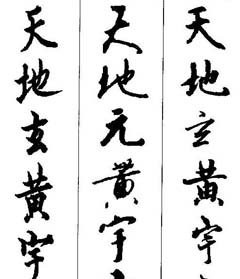 天地玄黄宇
天地元黄宇
天地玄黄宇